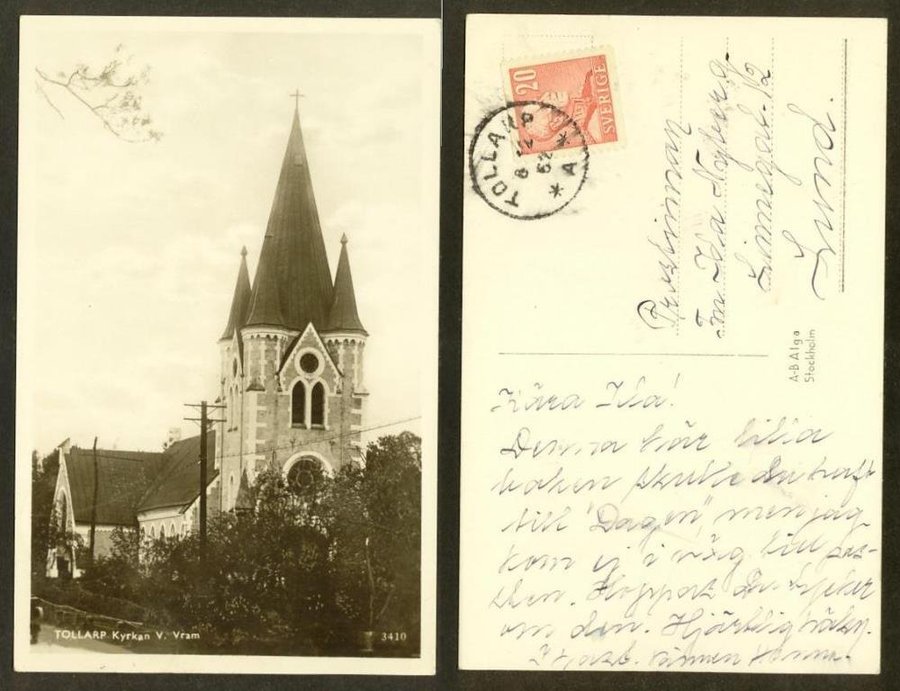 TOLLARP. Kyrkan V. Vram
3410
20
SVERIGE
TOLLARP
8 12
52
* A *
Prostinnan
Fru Ida Nyberg
Linnégat. 12
Lund.
A-B Alga
Stockholm
Kära Ida!
Denna här lilla
boken skulle du haft
till "Dagen", men jag
kom ej i väg till pos-
ten. Hoppas Du tycker
om den. Hjärtlig hälsn.